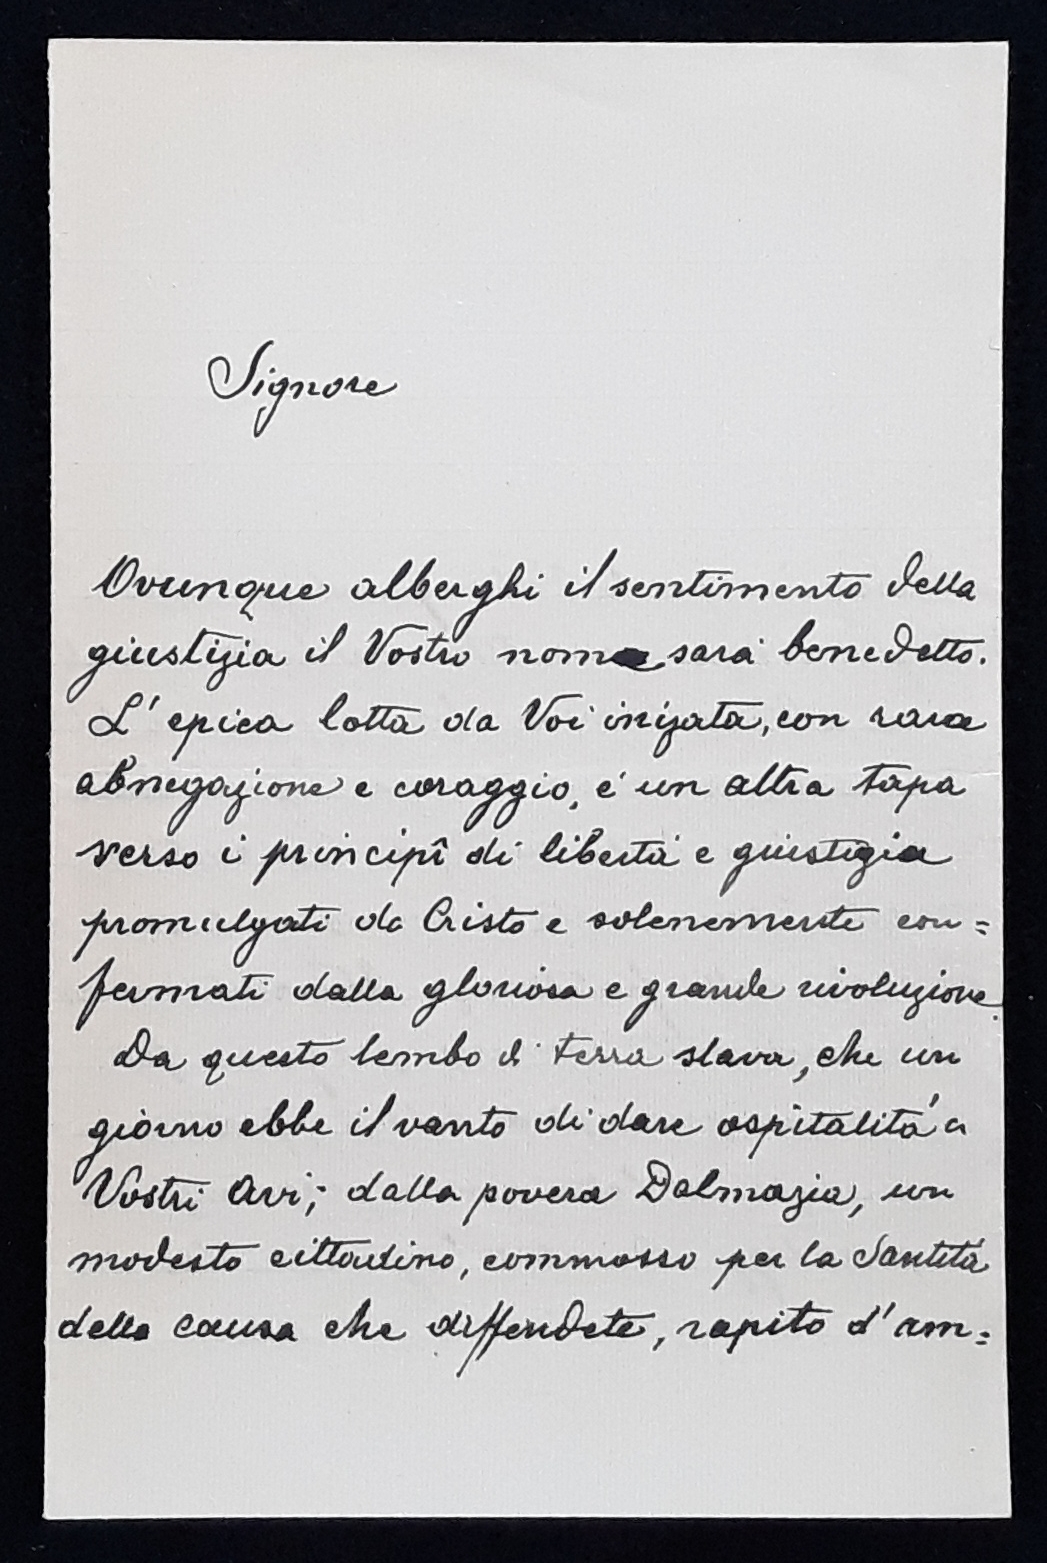 Signore
Ovunque alberghi il sentimento della
giustizia il Vostro nome sará benedetto.
L' epica lotta da Voi inizata, con rara
abnegazione e coraggio, é un altra tapa
verso i principî di libertá e giustizia
promulgati da Cristo e solenemente con=
fermati dalla gloriosa e grande rivoluzione.
Da questo lembo di terra slava, che un
giorno ebbe il vanto di dare ospitalitá a
Vostri Avi; dalla povera Dalmazia, un
modesto cittadino, commosso per la Santitá
della causa che diffendete, rapito d' am=